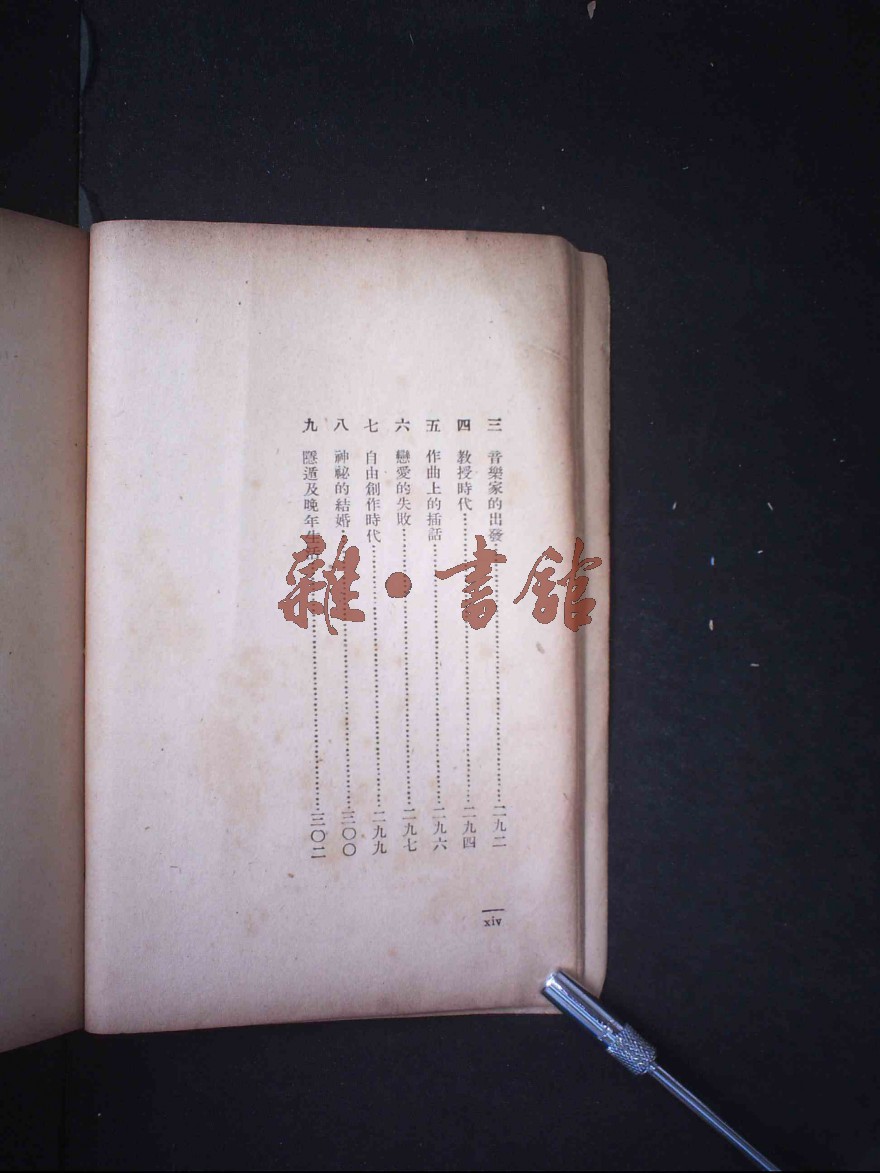 三 音樂家的出發……二九二
四 教授時代……二九四
五 作曲上的插話……二九六
六 戀愛的失敗……二九七
七 自由創作時代……二九九
八 神祕的結婚……三〇〇
九 隱遁及晚年生活……三〇二
xiv
雜·書館